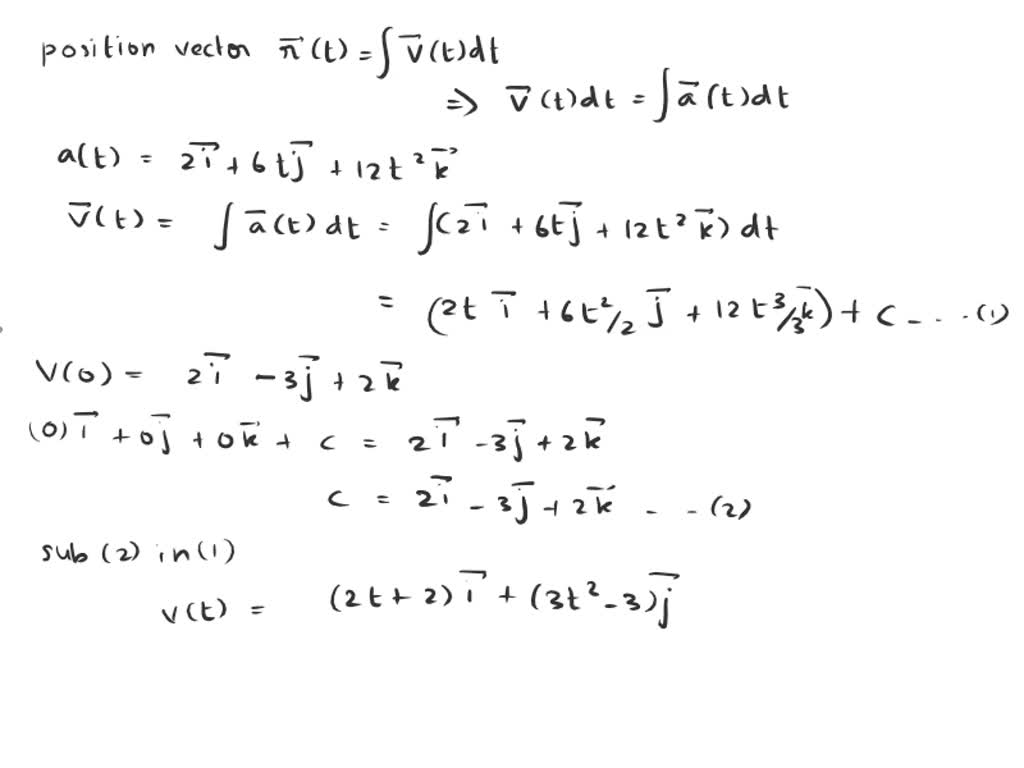 position vector r⃗(t) = ∫ v⃗(t)dt
⇒ v⃗(t)dt = ∫ a⃗(t)dt
a(t) = 2i⃗ + 6tj⃗ + 12t²k⃗
v⃗(t) = ∫ a⃗(t)dt = ∫(2i⃗ + 6tj⃗ + 12t²k⃗)dt
= (2t i⃗ + 6t²/2 j⃗ + 12t³/3 k⃗) + c - - - (1)
V(0) = 2i⃗ - 3j⃗ + 2k⃗
(0)i⃗ + 0j⃗ + 0k⃗ + c = 2i⃗ - 3j⃗ + 2k⃗
c = 2i⃗ - 3j⃗ + 2k⃗ - - (2)
sub (2) in (1)
v(t) = (2t + 2)i⃗ + (3t² - 3)j⃗